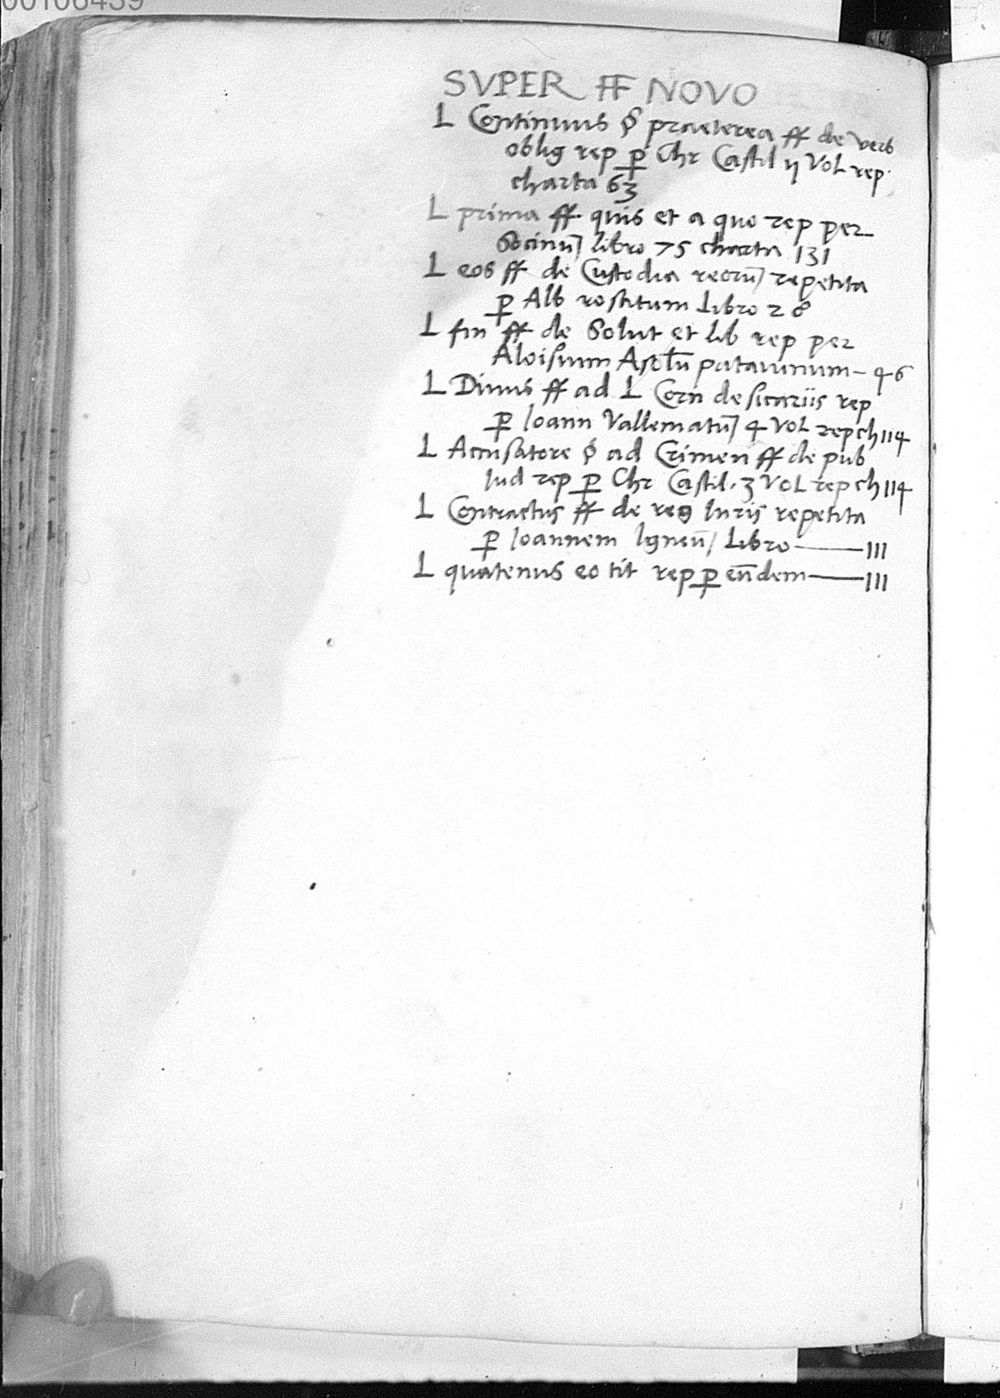 00106439
SVPER FF NOVO
L Continuus § praeterea ff de verb
oblig rep p̱ Chr Castil ij Vol rep.
charta 63
L prima ff quis et a quo rep per
Socinū libro 75 charta 131
L eos ff de Custodia reorū repetita
p̱ Alb Libro 28
L fin ff de Solut et lib rep per
Aloisium patauinum - 46
L Diuus ff ad L Corn de sicariis rep
p̱ Ioann Vallematū 4 Vol rep ch 114
L Accusatore § ad Crimen ff de pub
Iud rep p̱ Chr Castil. 3 Vol rep ch 114
L Contractus ff de reg Iuris repetita
p̱ Ioannem Igneū Libro — 111
L quatenus eo tit rep p̱ eūdem — 111